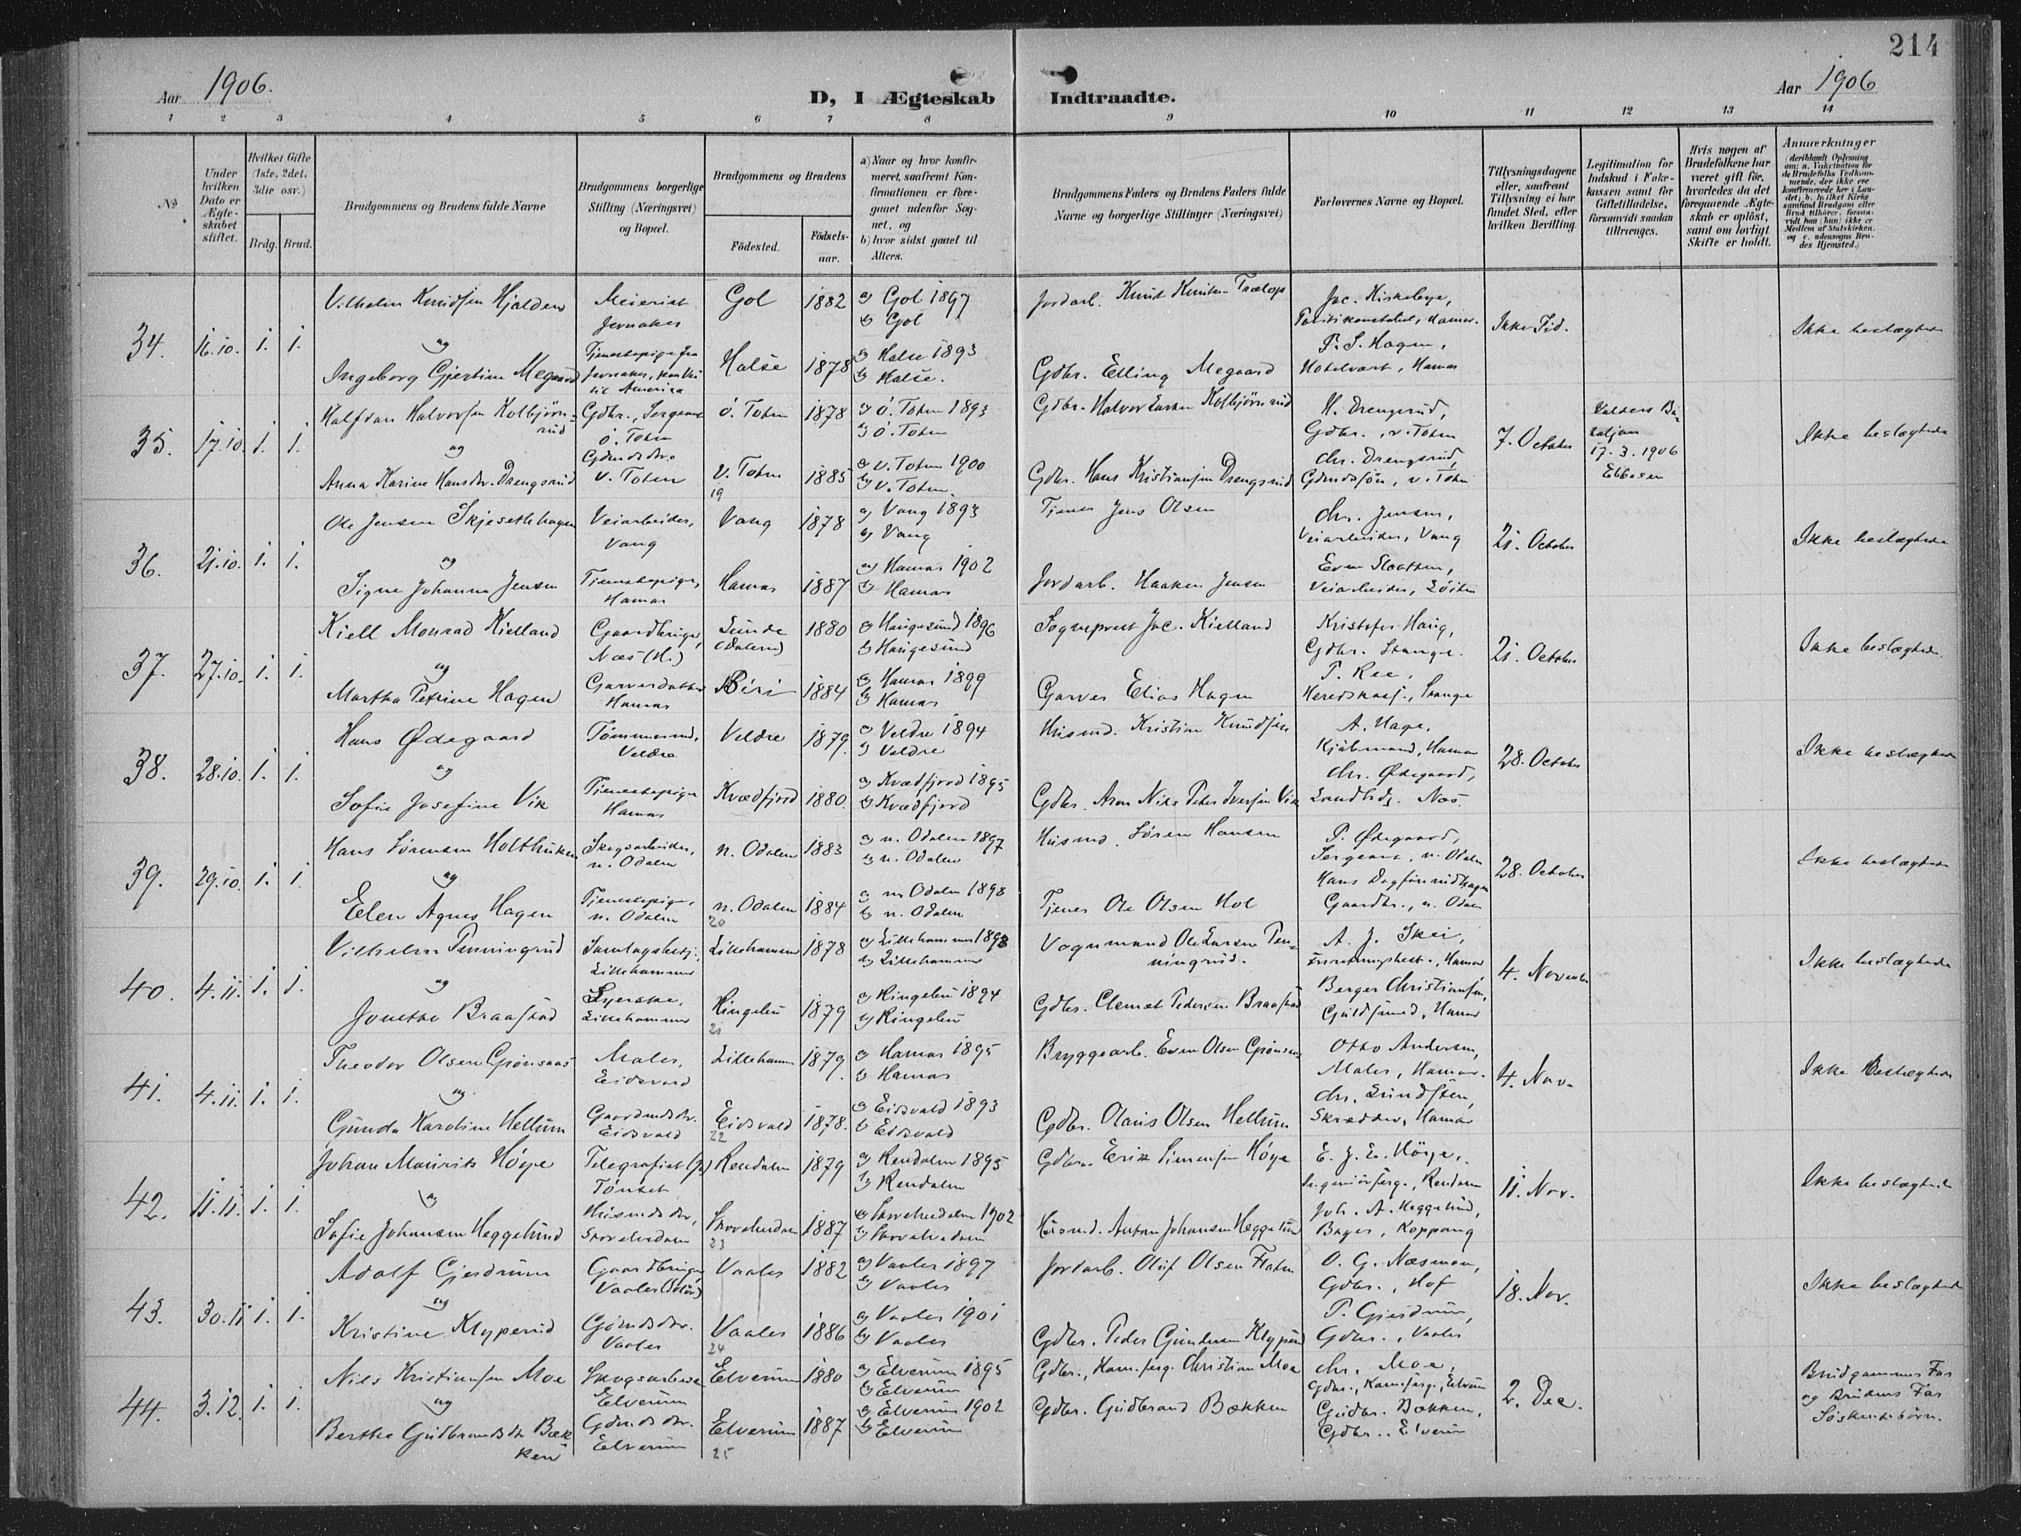 214
Aar 1906.
D, I Ægteskab Indtraadte.
Aar 1906
1 2 3 4 5 6 7 8 9 10 11 12 13 14
No
Under hvilken Dato er Ægteskabet stiftet.
Hvilket Gifte (1ste, 2det, 3die osv.)
Brdg. Brud.
Brudgommens og Brudens fulde Navne
Brudgommens borgerlige Stilling (Næringsvei) og Bopæl.
Brudgommens og Brudens
Fødested.
Fødsels-aar.
a) Naar og hvor konfirmeret, saafremt Konfirmationen er foregaaet udenfor Sognet, og
b) hvor sidst gaaet til Alters.
Brudgommens Faders og Brudens Faders fulde Navne og borgerlige Stillinger (Næringsvei)
Forlovernes Navne og Bopæl.
Tillysningsdagene eller, saafremt Tillysning ei har fundet Sted, efter hvilken Bevilling.
Legitimation for Indskud i Enkekassen samt for Giftetilladelse, forsaavidt saadan tiltrænges.
Hvis nogen af Brudefolkene har været gift før, hvorledes da det foregaaende Ægteskab er opløst, samt om lovligt Skifte er holdt.
Anmærkninger
34. 16.10. 1. 1. Vilhelm Knudsen Hjalden Meierist Jevnaker Gol 1882 a) Gol 1897 b) Gol Jordarb. Knut Knutsen Jac. Kirkebye, Hamar. Ikke Tid. Ikke beslægtede
og
Ingeborg Gjertine Megaard Tjenestepige fra Jevnaker, til Amerika Halse 1878 a) Halse 1893 b) Halse. Gdbr. Elling Megaard P. S. Hagen, Hotelvært, Hamar
35. 17.10 1. 1 Halfdan Halvorsen Kolbjørnsrud Gdbr., Sergeant Ø. Toten Ø. Toten 1878 a) Ø. Toten 1893 b) Ø. Toten Gdbr. Halvor Larsen Kolbjørnsrud H. Drengsrud, Gdbr., v. Toten 7. October 17.3.1906 Ebbesen Ikke beslægtede
og
Anna Karine Hansdtr. Drengsrud Gdmdsdtr. V. Toten V. Toten 19 1885 a) V. Toten 1900 b) V. Toten. Gdbr. Hans Kristiansen Drengsrud Chr. Drengsrud, Gdmdssøn, v. Toten
36. 21.10. 1. 1. Ole Jensen Skjesethhagen Veiarbeider, Vang Vang 1878 a) Vang 1893 b) Vang Tjener Jens Olsen Chr. Jensen, Veiarbeider, Vang 21. October Ikke beslægtede
og
Signe Johanne Jensen Tjenestepige, Hamar Hamar 1887 a) Hamar 1902 b) Hamar Jordarb. Haaken Jensen Even Slaatten, Veiarbeider, Løiten
37. 27.10. 1. 1. Kiell Monrad Kielland Gaardbruger, Næs (H.) Sunde (Dalene) 1880 a) Haugesund 1896 b) Haugesund Sogneprest Jac. Kielland Kristofer Haug, Gdbr. Stange. 21. October Ikke beslægtede.
og
Martha Petrine Hagen Garverdatter Hamar Biri 1884 a) Hamar 1899 b) Hamar Garver Elias Hagen P. Ree, Stange
38. 28.10. 1. 1. Hans Ødegaard Tømmermd., Veldre Veldre 1879. a) Veldre 1894 b) Veldre Husmd. Kristian Knudsen A. Hage, Kjøbmand, Hamar 28. October Ikke beslægtede
og
Sofie Josefine Vik Tjenestepige Hamar Kvædfjord 1880. a) Kvædfjord 1895 b) Kvædfjord Gdbr. Aron Nils Peter Iversen Vik Chr. Ødegaard, Næs.
39. 29.10. 1. 1. Hans Sørensen Holthuken Skogsarbeider, n. Odalen n. Odalen 1883 a) n. Odalen 1897 b) n. Odalen Husmd. Søren Hansen P. Ødegaard, Sergeant, n. Odalen 28. October Ikke beslægtede
og
Elen Agnes Hagen Tjenestepige, n. Odalen n. Odalen 20 1884 a) n. Odalen 1898 b) n. Odalen Tjener Ole Olsen Hol Hans Dagfinrudhagen Gaardbr., n. Odalen
40. 4.11. 1. 1. Vilhelm Penningrud Samlagsbestj., Lillehammer Lillehammer 1878 a) Lillehammer 1893 b) Lillehammer Vognmand Ole Larsen Penningrud. A. J. Skei, Forretningsbest., Hamar 4. November Ikke beslægtede
og
Jonette Braastad Syerske, Lillehammer Ringebu 21 1879 a) Ringebu 1894 b) Ringebu Gdbr. Clemet Pedersen Braastad Berger Christiansen, Guldsmed, Hamar
41. 4.11. 1. 1. Theodor Olsen Grønsaas Maler, Eidsvold Lillehammer 1879. a) Hamar 1895 b) Hamar Bryggearb. Even Olsen Grønsaas Otto Andersen, Maler, Hamar. 4. Nov. Ikke Beslægtede
og
Gunda Karoline Hellum Gaardmdsdtr. Eidsvold Eidsvold 22 1878. a) Eidsvold 1893 b) Eidsvold Gdbr. Olaus Olsen Hellum Chr. Lundsten, Skrædder, Hamar
42. 11.11. 1. 1. Johan Mauritz Høye Telegrafist Tønset Rendalen 1879 a) Rendalen 1895 b) Rendalen Gdbr. Erik Simensen Høye E. J. E. Høye, Rendalen 11. Nov. Ikke beslægtede
og
Sofie Johansen Heggelund Husmdsdtr., Storelvedalen Storelvedalen 23 1887 a) Storelvedalen 1902 b) Storelvedalen Husmd. Anton Johansen Heggelund Joh. A. Heggelund, Bager, Koppang
43. 30.11 1. 1. Adolf Gjerdrum Gaardbruger Vaaler (Solør) Vaaler 1882 a) Vaaler 1897 b) Vaaler Jordarb. Oluf Olsen Flaten O. G. Næsmoen, Gdbr., Hof 18. Nov. Ikke beslægtede
og
Kristine Klyperud Gdmdsdtr. Vaaler Vaaler 24 1886 a) Vaaler 1901 b) Vaaler Gdbr. Peder Gundersen Klyperud P. Gjerdrum, Gdbr., Vaaler
44. 3.12. 1. 1. Nils Kristiansen Moe Skogsarbeider Elverum Elverum 1880 a) Elverum 1895 b) Elverum Gdbr., Christian Moe Chr. Moe, Gdbr., Elverum 2. Dec. Brudgommens Far og Brudens Far Søskendebørn.
og
Berthe Gudbrandsdtr Bækken Gdmdsdtr. Elverum Elverum 25 1887 a) Elverum 1902 b) Elverum Gdbr. Gudbrand Bækken Gudbr. Bækken, Gdbr., Elverum